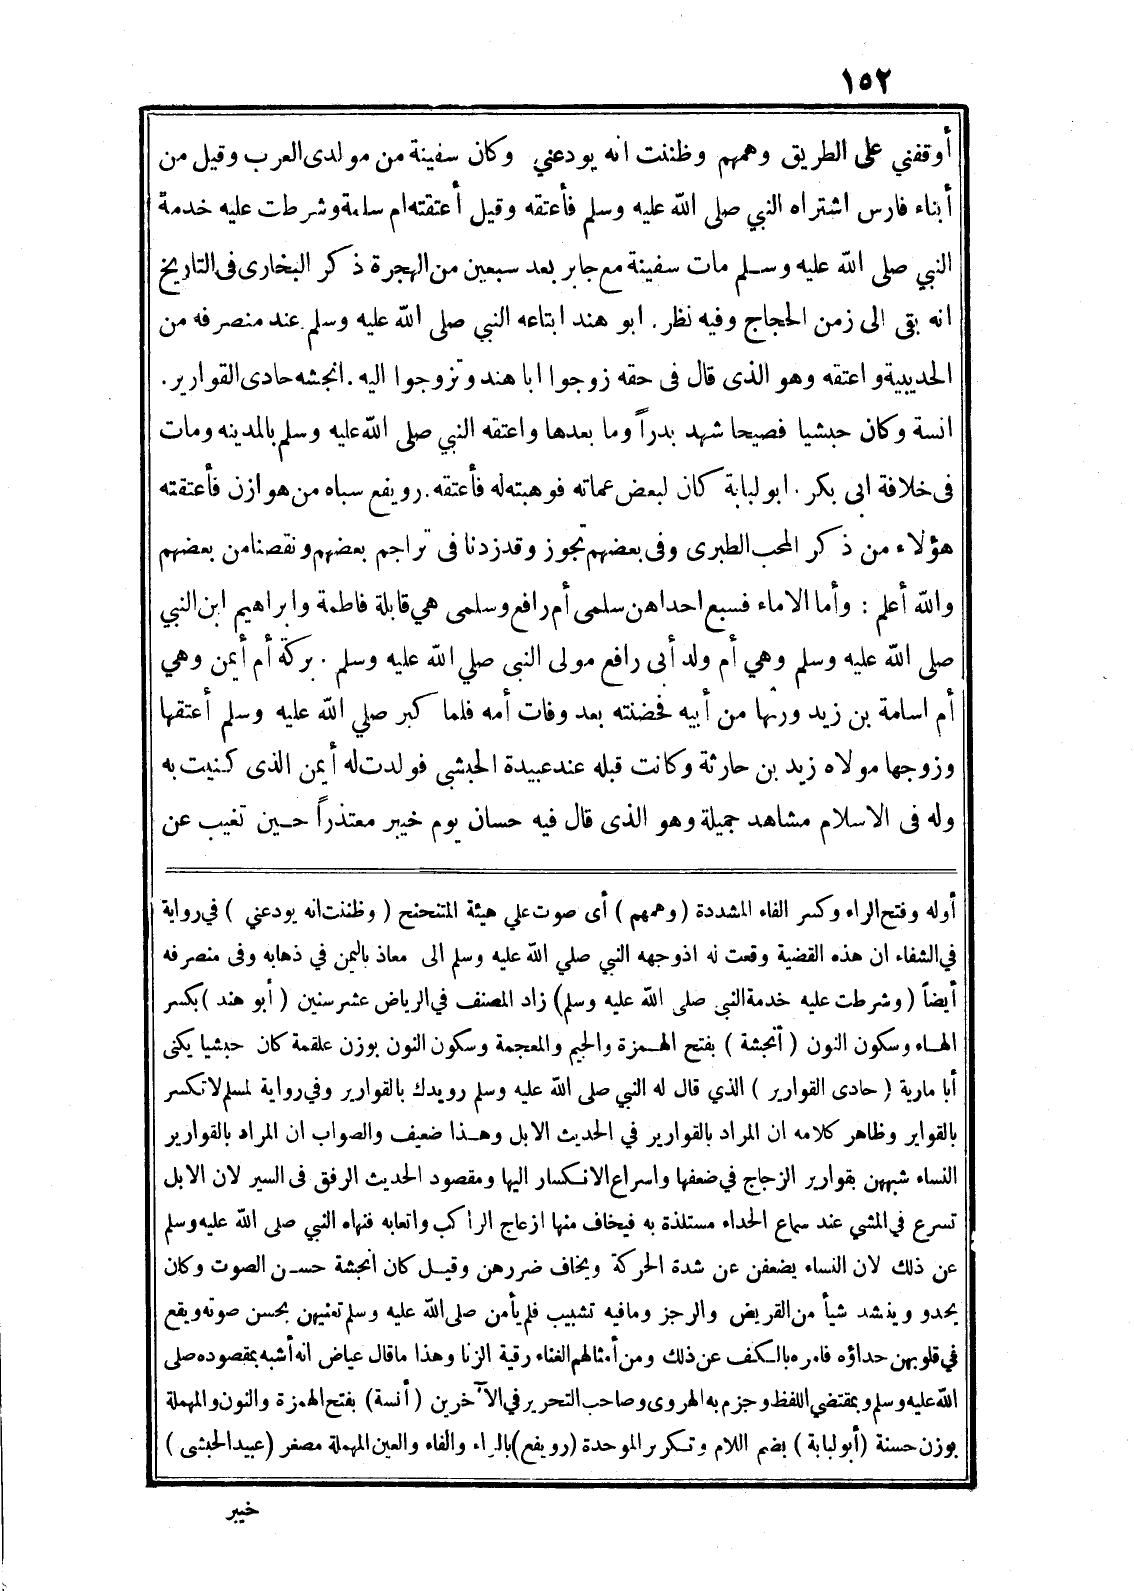 ١٥٢
أوقفني على الطريق وهمهم وظننت انه يودعني وكان سفينة من مولدى العرب وقيل من
أبناء فارس اشتراه النبي صلى الله عليه وسلم فأعتقه وقيل أعتقته ام سلمة وشرطت عليه خدمة
النبي صلى الله عليه وسلم مات سفينة مع جابر بعد سبعين من الهجرة ذكر البخارى فى التاريخ
انه بقى الى زمن الحجاج وفيه نظر. ابو هند ابتاعه النبي صلى الله عليه وسلم عند منصرفه من
الحديبية واعتقه وهو الذى قال فى حقه زوجوا ابا هند وتزوجوا اليه. انجشه حادى القوارير.
انسة وكان حبشيا فصيحا شهد بدراً وما بعدها واعتقه النبي صلى الله عليه وسلم بالمدينه ومات
فى خلافة ابى بكر. ابو لبابة كان لبعض عماته فوهبته له فأعتقه. رويفع سباه من هوازن فأعتقته
هؤلاء من ذكر المحب الطبرى وفى بعضهم تجوز وقد زدنا فى تراجم بعضهم ونقصنا من بعضهم
والله أعلم : وأما الاماء فسبع احداهن سلمى أم رافع وسلمى هي قابلة فاطمة وابراهيم ابن النبي
صلى الله عليه وسلم وهي أم ولد أبى رافع مولى النبى صلي الله عليه وسلم . بركة أم أيمن وهي
أم اسامة بن زيد ورثها من أبيه فحضنته بعد وفات أمه فلما كبر صلي الله عليه وسلم أعتقها
وزوجها مولاه زيد بن حارثة وكانت قبله عند عبيدة الحبشي فولدت له أيمن الذى كنيت به
وله فى الاسلام مشاهد جميلة وهو الذى قال فيه حسان يوم خيبر معتذراً حين تغيب عن
أوله وفتح الراء وكسر الفاء المشددة (وهمهم) أى صوت علي هيئة المتنحنح (وظننت انه يودعني) في رواية
في الشفاء ان هذه القضية وقعت له اذ وجهه النبي صلي الله عليه وسلم الى معاذ باليمن في ذهابه وفى منصرفه
أيضاً (وشرطت عليه خدمة النبي صلى الله عليه وسلم) زاد المصنف في الرياض عشر سنين (أبو هند) بكسر
الهاء وسكون النون (أنجشة) بفتح الهمزة والجيم والمعجمة وسكون النون بوزن علقمة كان حبشيا يكنى
أبا مارية (حادى القوارير) الذي قال له النبي صلى الله عليه وسلم رويدك بالقوارير وفي رواية لمسلم لا تكسر
بالقواير وظاهر كلامه ان المراد بالقوارير في الحديث الابل وهذا ضعيف والصواب ان المراد بالقوارير
النساء شبههن بقوارير الزجاج في ضعفها واسراع الانكسار اليها ومقصود الحديث الرفق فى السير لان الابل
تسرع في المشي عند سماع الحداء مستلذة به فيخاف منها ازعاج الراكب واتعابه فنهاه النبي صلى الله عليه وسلم
عن ذلك لان النساء يضعفن عن شدة الحركة ويخاف ضررهن وقيل كان أنجشة حسن الصوت وكان
يحدو وينشد شيأ من القريض والرجز ومافيه تشبيب فلم يأمن صلى الله عليه وسلم تعنيهن بحسن صوته ويقع
في قلوبهن حداؤه فامره بالكف عن ذلك ومن أمثالهم الغناء رقية الزنا وهذا ماقال عياض انه أشبه بمقصوده صلى
الله عليه وسلم وبمقتضي اللفظ وجزم به الهروى وصاحب التحرير في الآخرين (أنسة) بفتح الهمزة والنون والمهملة
بوزن حسنة (أبو لبابة) بضم اللام وتكرير الموحدة (رويفع) بالراء والفاء والعين المهملة مصغر (عبيد الحبشى)
خيبر